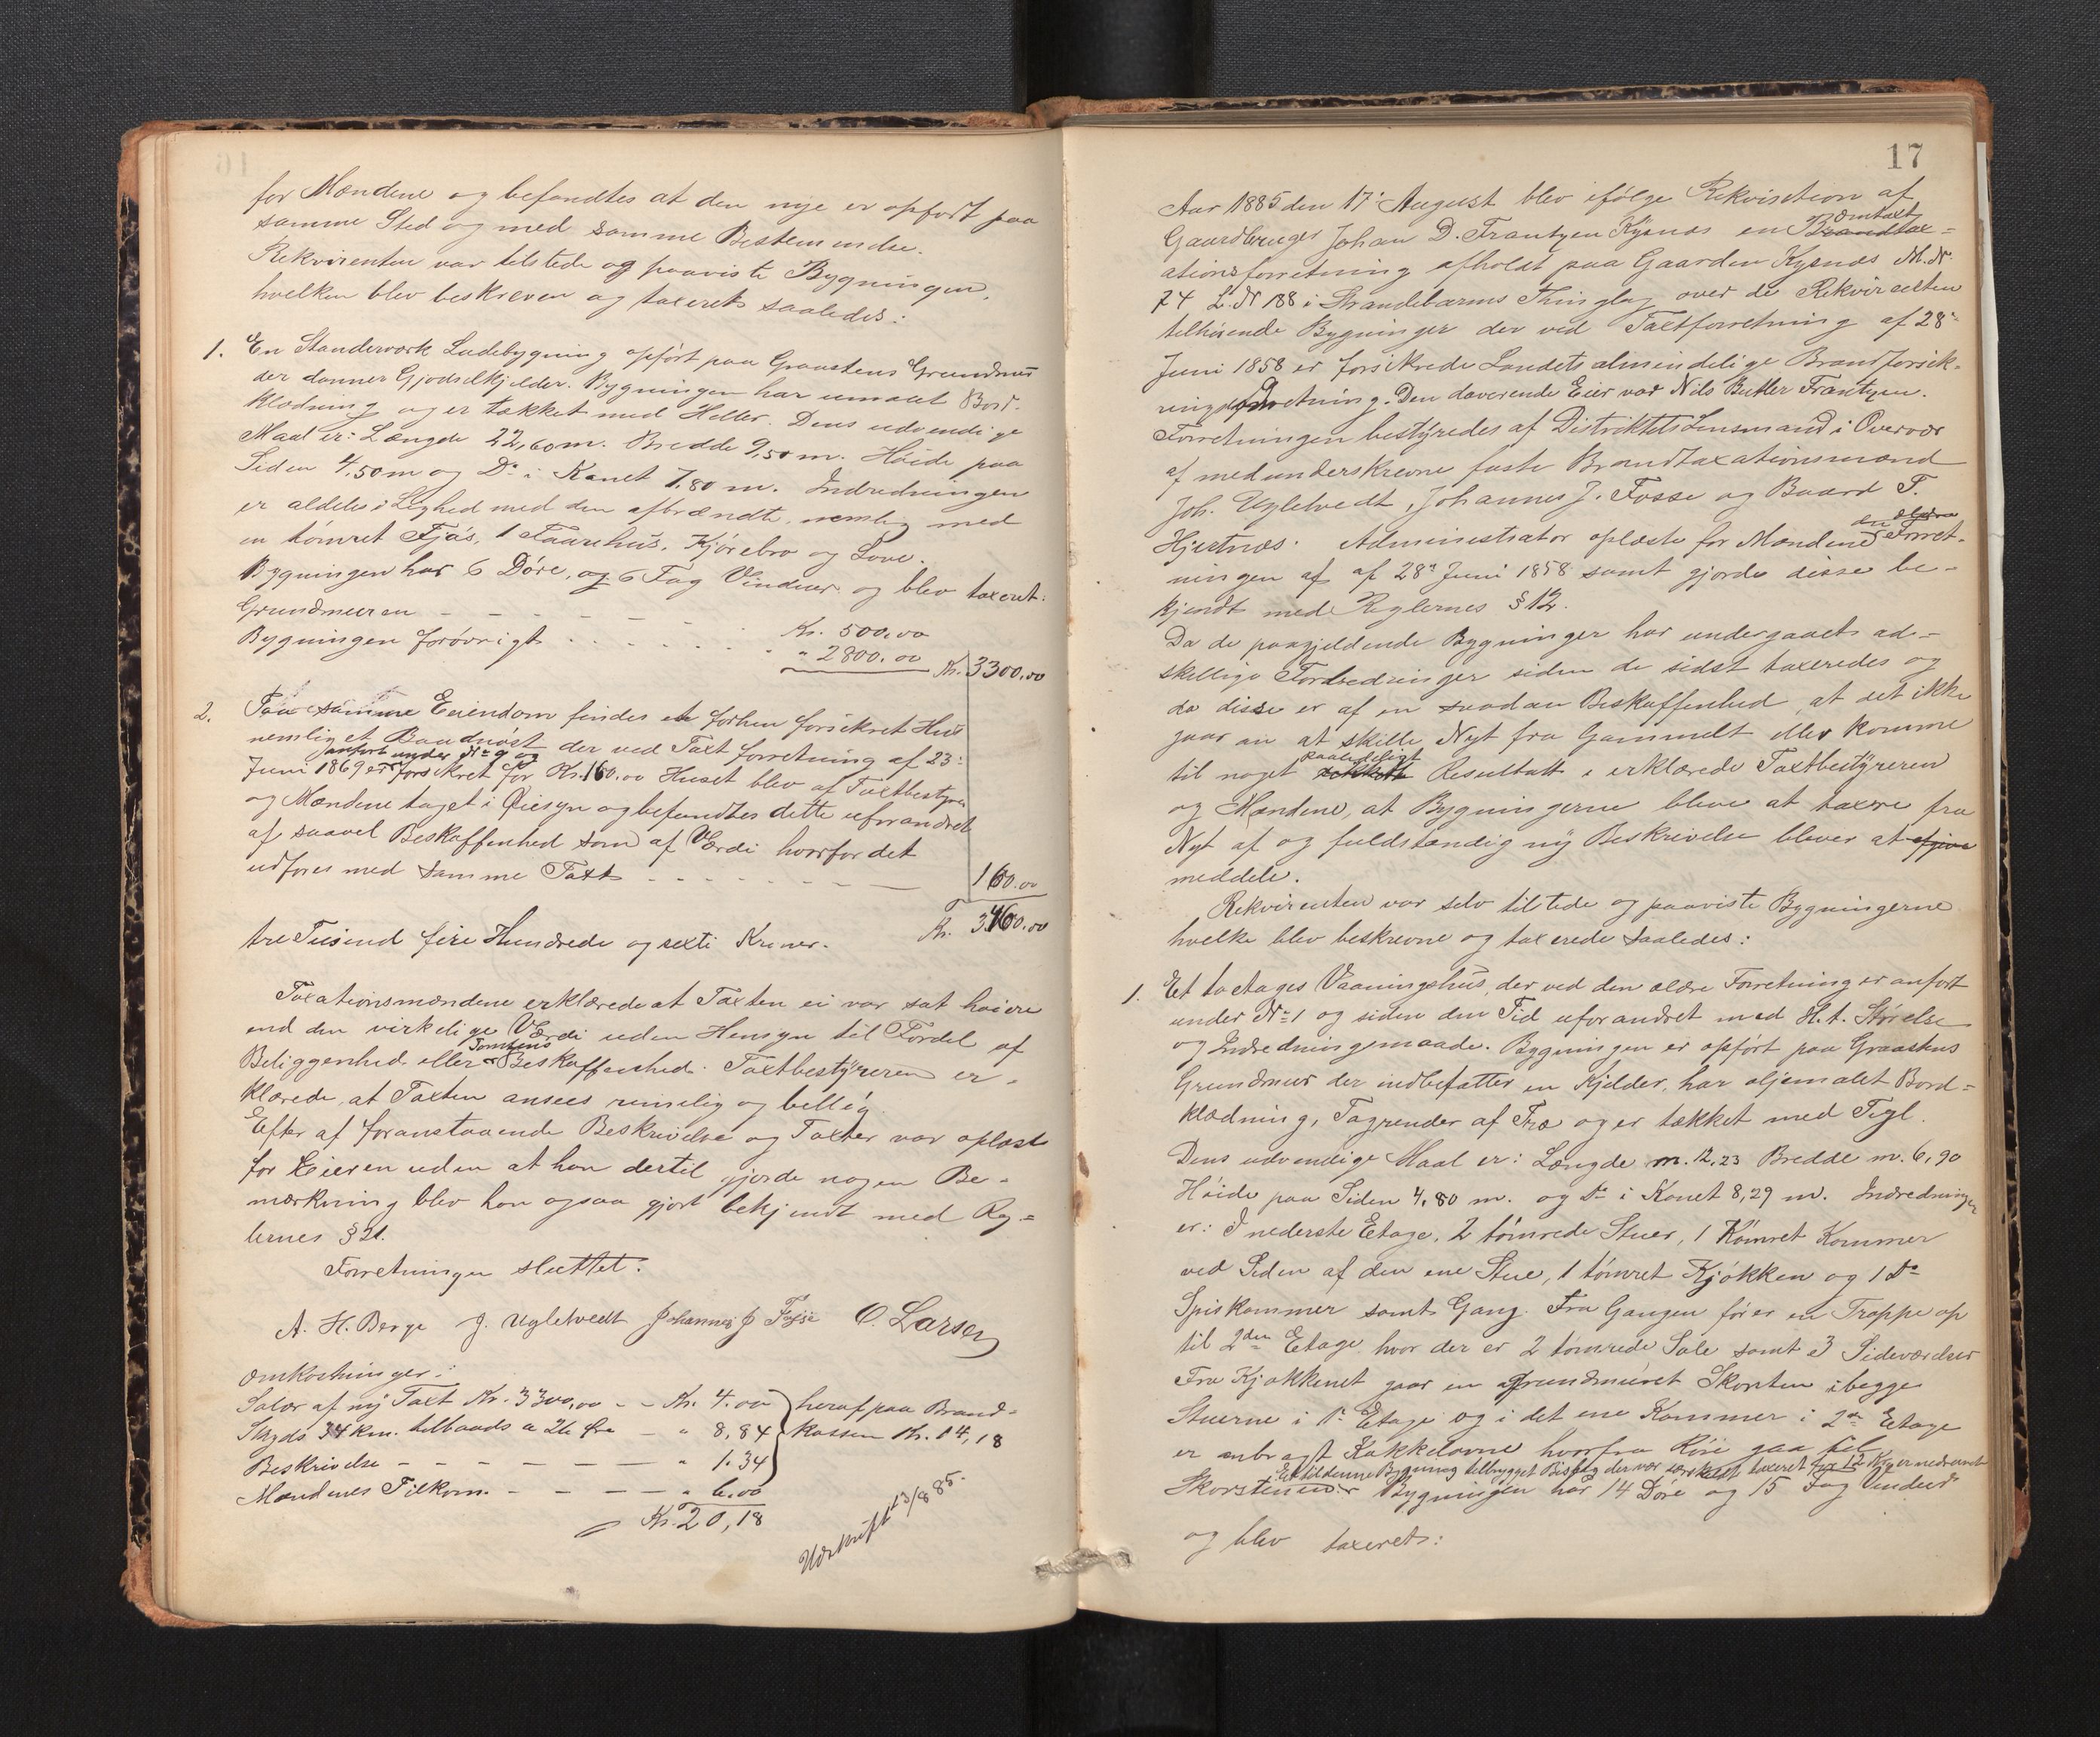 for Mændene og befandtes at den nye er opført paa
samme Sted og med samme Bestemmelse.
Rekvirenten var tilstede og paaviste Bygningen,
hvilken blev beskreven og taxeret saaledes:
1. En Standerværk Ladebygning opført paa Graastens Grundmur
der danner Gjødselkjelder. Bygningen har umalet Bord-
klædning og er tækket med Heller. Dens udvendige
Maal er: Længde 22,60 m. Bredde 9,50 m. Høide paa
Siden 4,50 m og Do i Rønet 7,80 m. Indredningen
er aldeles i Lighed med den afbrændte, nemlig med
en tømret Fjøs, 1 Faarehus, Kjørebro og Love.
Bygningen har 6 Døre, og 6 Fag Vinduer og blev taxeret:
Grundmuren - - - - - Kr. 500,00
Bygningen forøvrigt . . . . . . " 2800,00 Kr. 3300,00
2. Paa samme Eiendom findes et forhen forsikret Hus
nemlig et Baadnøst der ved Taxtforretning af 23:
anført under No 9 og
Juni 1869 er forsikret for Kr. 160,00 Huset blev af Taxtbestyrer
og Mændene taget i Øiesyn og befandtes dette uforandret
af saavel Beskaffenhed som af Værdi hvorfor det
udføres med samme Taxt - - - - - - - 160,00
Kr. 3460,00
tre Tusind fire Hundrede og sexti Kroner.
Taxationsmændene erklærede at Taxten ei var sat høiere
end den virkelige Værdi uden Hensyn til Fordel af
Tomtens
Beliggenhed eller Beskaffenhed. Taxtbestyreren er-
klærede, at Taxten ansees rimelig og billig.
Efter af foranstaaende Beskrivelse og Taxter var oplæst
for Eieren uden at han dertil gjorde nogen Be-
mærkning blev han ogsaa gjort bekjendt med Reg-
lernes § 21.
Forretningen sluttet.
A. H. Berge J. Ugletvedt Johannes J Fosse O. Larsen
Omkostninger:
Salær af ny Taxt Kr. 3300,00 - - Kr. 4.00
Skyds 34 km. tilbaads a 26 Øre - " 8,84
Beskrivelse - - - - - - " 1.34
heraf paa Brand-
kassen Kr. 14,18
Mændenes Tilkom. - - - - " 6.00
Kr. 20,18
Udskrift 13/8 85.
17
Aar 1885 den 17: August blev ifølge Rekvisition af
Omtaxt
Gaardbruger Johan D. Frantzen Kysnæs en Brandtax-
ationsforretning afholdt paa Gaarden Kysnæs M. Nr.
74 L. Nr 188 i Strandebarms Thinglag over de Rekvirenten
tilhørende Bygninger der ved Taxtforretning af 28:
Juni 1858 er forsikrede Landets almindelige Brandforsik-
ringsindretning. Den daværende Eier var Nils Butler Frantzen.
Forretningen bestyredes af Distriktets Lensmand i Overvær
af medunderskrevne faste Brandtaxationsmænd
Joh. Ugletvedt, Johannes J. Fosse og Baard T.
den ældre
Hjertnæs. Administrator oplæste for Mændene Forret-
ningen af af 28: Juni 1858 samt gjorde disse be-
kjendt med Reglernes § 12.
Da de paagjeldende Bygninger har undergaaet ad-
skellige Fordredninger siden de sidst taxeredes og
da disse er af en saadan Beskaffenhed, at det ikke
gaar an at skille Nyt fra Gammelt eller komme
paalideligt
til noget sikkert Resultatt, erklærede Taxtbestyreren
og Mændene, at Bygningerne bleve at taxere fra
Nyt af og fuldstændig ny Beskrivelse bliver at afgive
meddele.
Rekvirenten var selv tilstede og paaviste Bygningerne
hvilke blev beskrevne og taxerede saaledes:
1. Et toetages Vaaningshus, der ved den ældre Forretning er anført
under No 1 og siden den Tid uforandret med H. t. Størelse
og Indredningsmaade. Bygningen er opført paa Graastens
Grundmur der indbefatter en Kjelder, har oljemalet Bord-
klædning, Tagrender af Træ og er tækket med Tegl.
Dens udvendige Maal er: Længde m. 12,23 Bredde m. 6,90
Høide paa Siden 4,80 m. og Do i Rønet 8,29 m. Indredningen
er: I nederste Etage, 2 tømrede Stuer, 1 tømret Kammer
ved Siden af den ene Stue, 1 tømret Kjøkken og 1 Do
Spiskammer samt Gang. Fra Gangen fører en Trappe op
til 2den Etage hvor der er 2 tømrede Sale samt 3 Sideværelser
Fra Kjøkkenet gaar en grundmuret Skorsten i begge
Stuerne i 1: Etage og i det ene Kammer i 2den Etage
er anbragt Kakkelovne hvorfra Røir gaa til
Et til denne Bygning tilbygget Bislag der var særskilt taxeret for 12 Kr. er nedrevet
Skorstenen. Bygningen har 14 Døre og 15 Fag Vinduer
og blev taxeret: